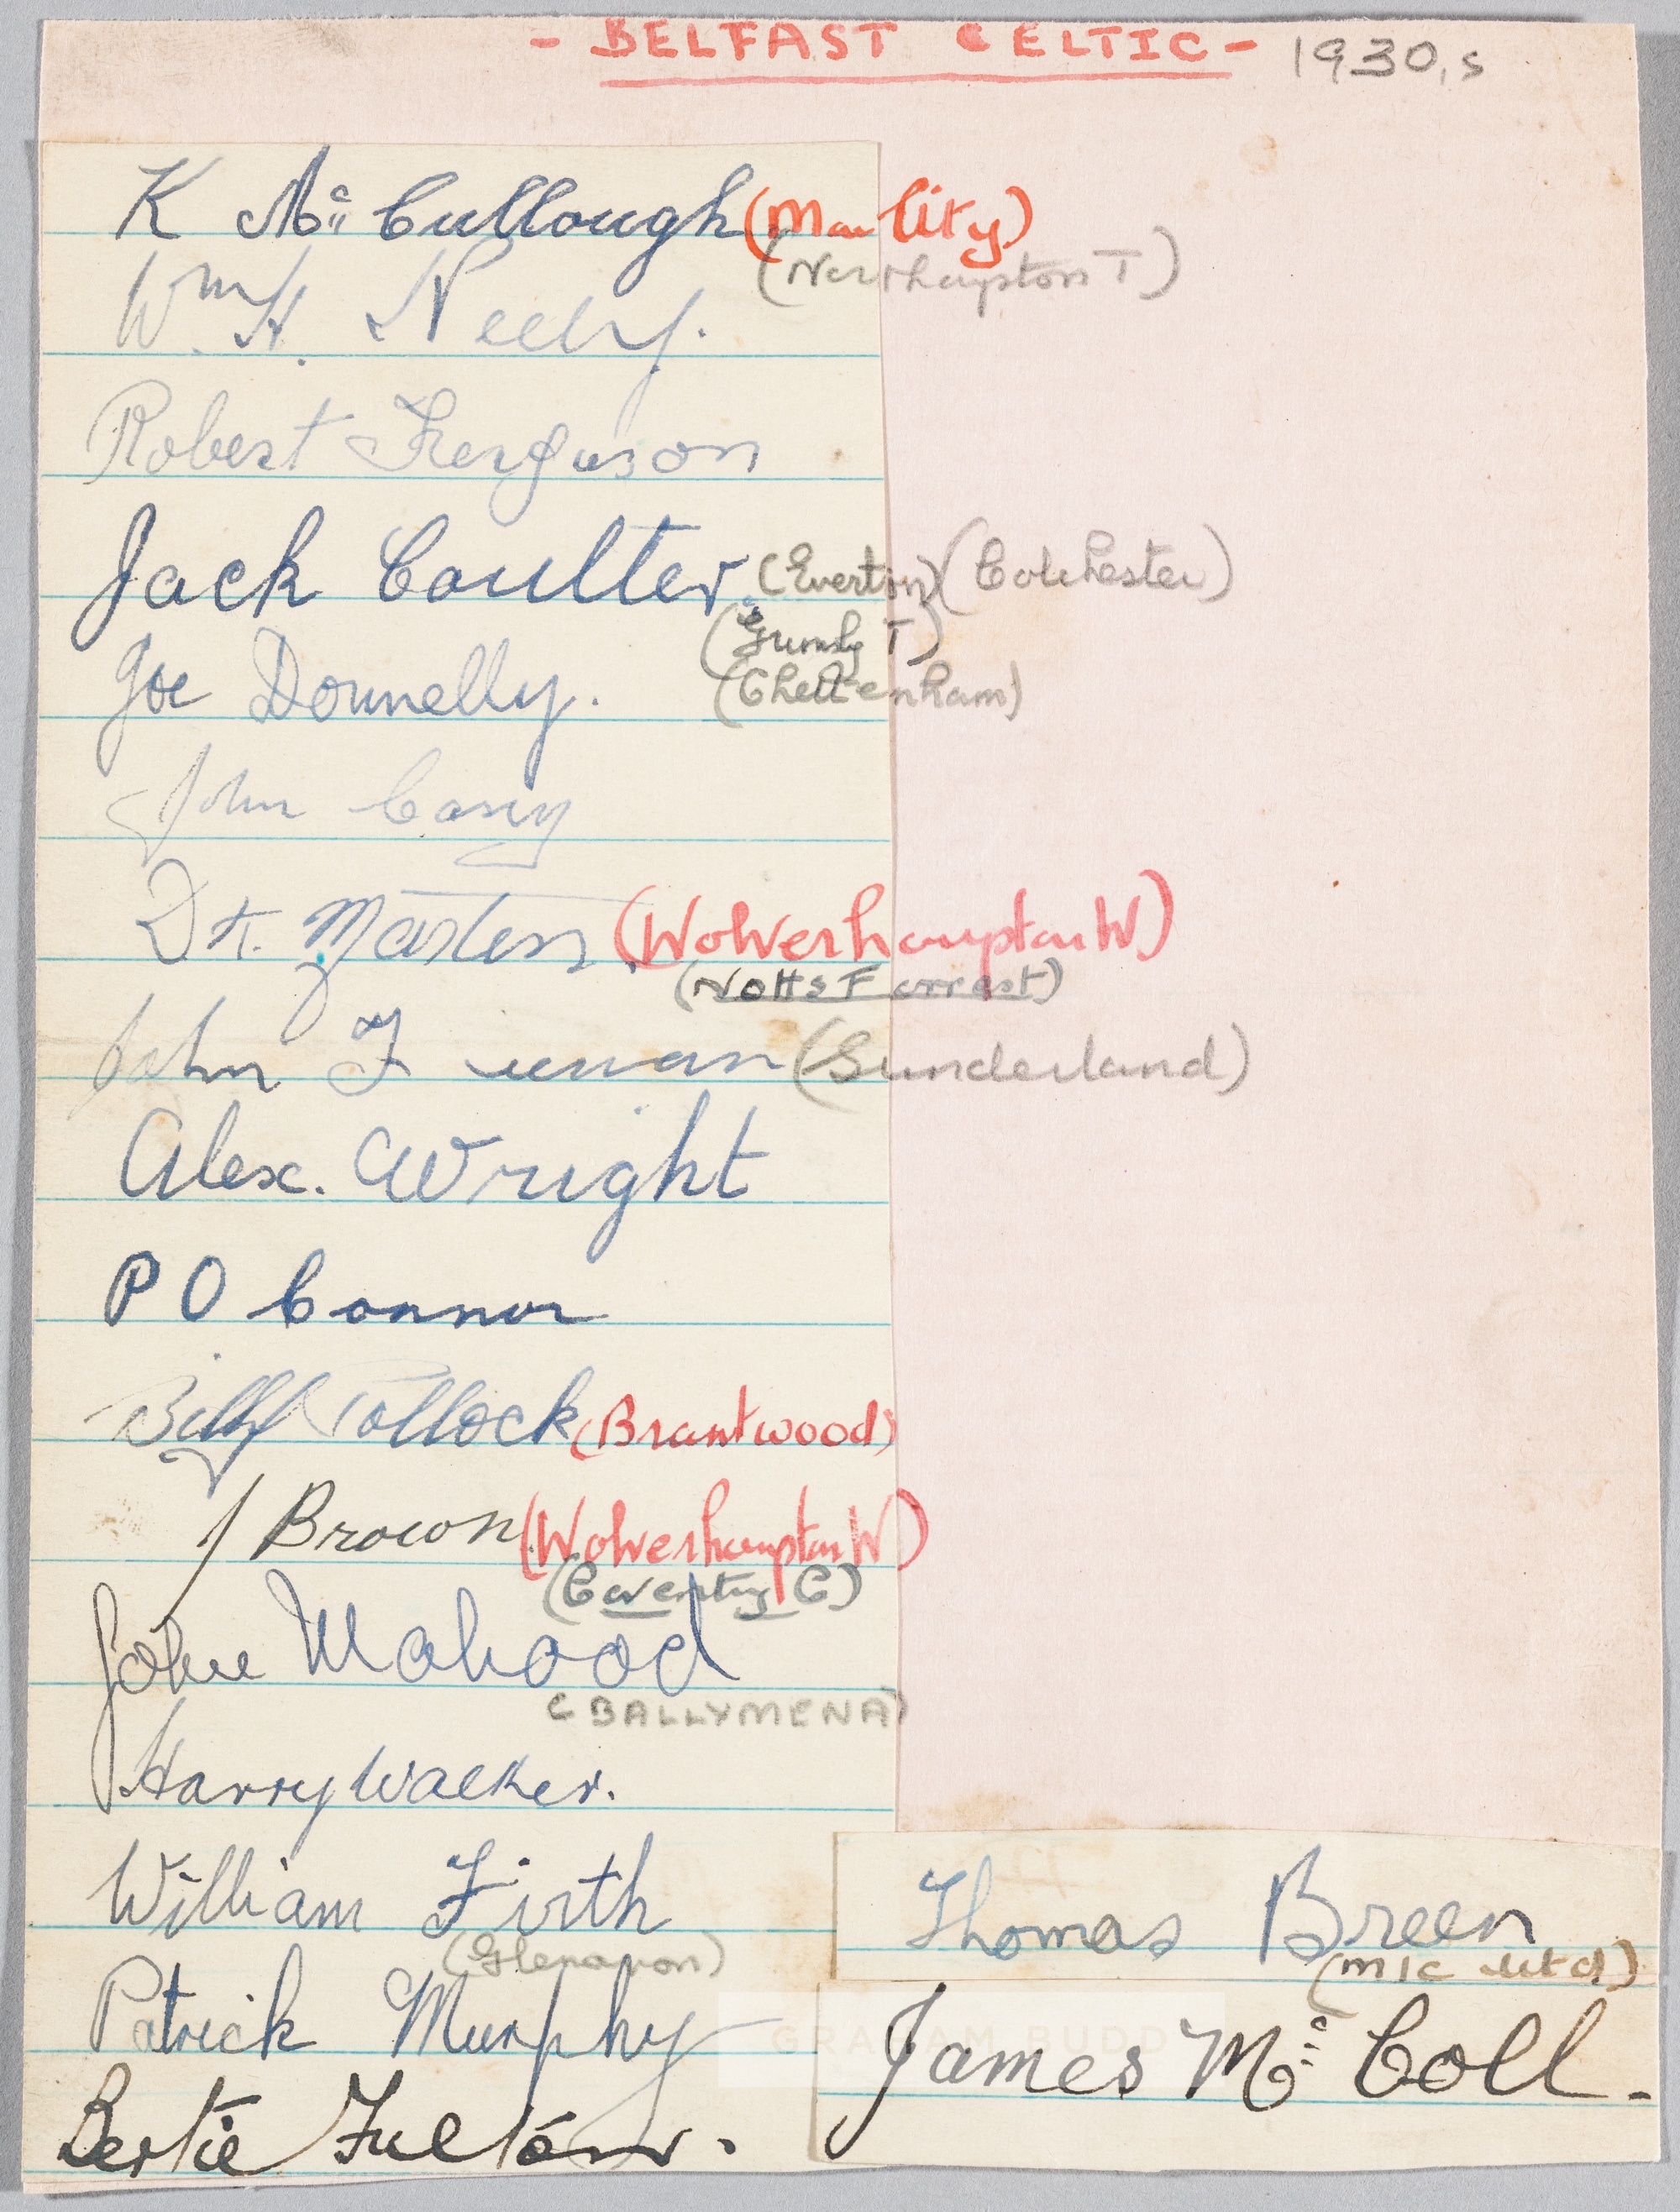 - BELFAST CELTIC - 1930,s
K McCullough (Man City)
(Northampton T)
Wm H. Neely.
Robert Ferguson
Jack Coulter. (Everton) (Colchester)
(Grimsby T)
Joe Donnelly. (Cheltenham)
John
D.K. Martin. (Wolverhampton W)
(Notts Forrest)
John F (Sunderland)
Alex. Wright
P O Connor
Billy Pollock (Brantwood)
J Brown (Wolverhampton W)
(Coventry C)
John Mahood
(BALLYMENA)
Harry Walker.
William Firth
(Glenavon)
Patrick Murphy
Bertie Fulton.
Thomas Breen
(M/c Utd)
James McColl.
GRAHAM BUDD